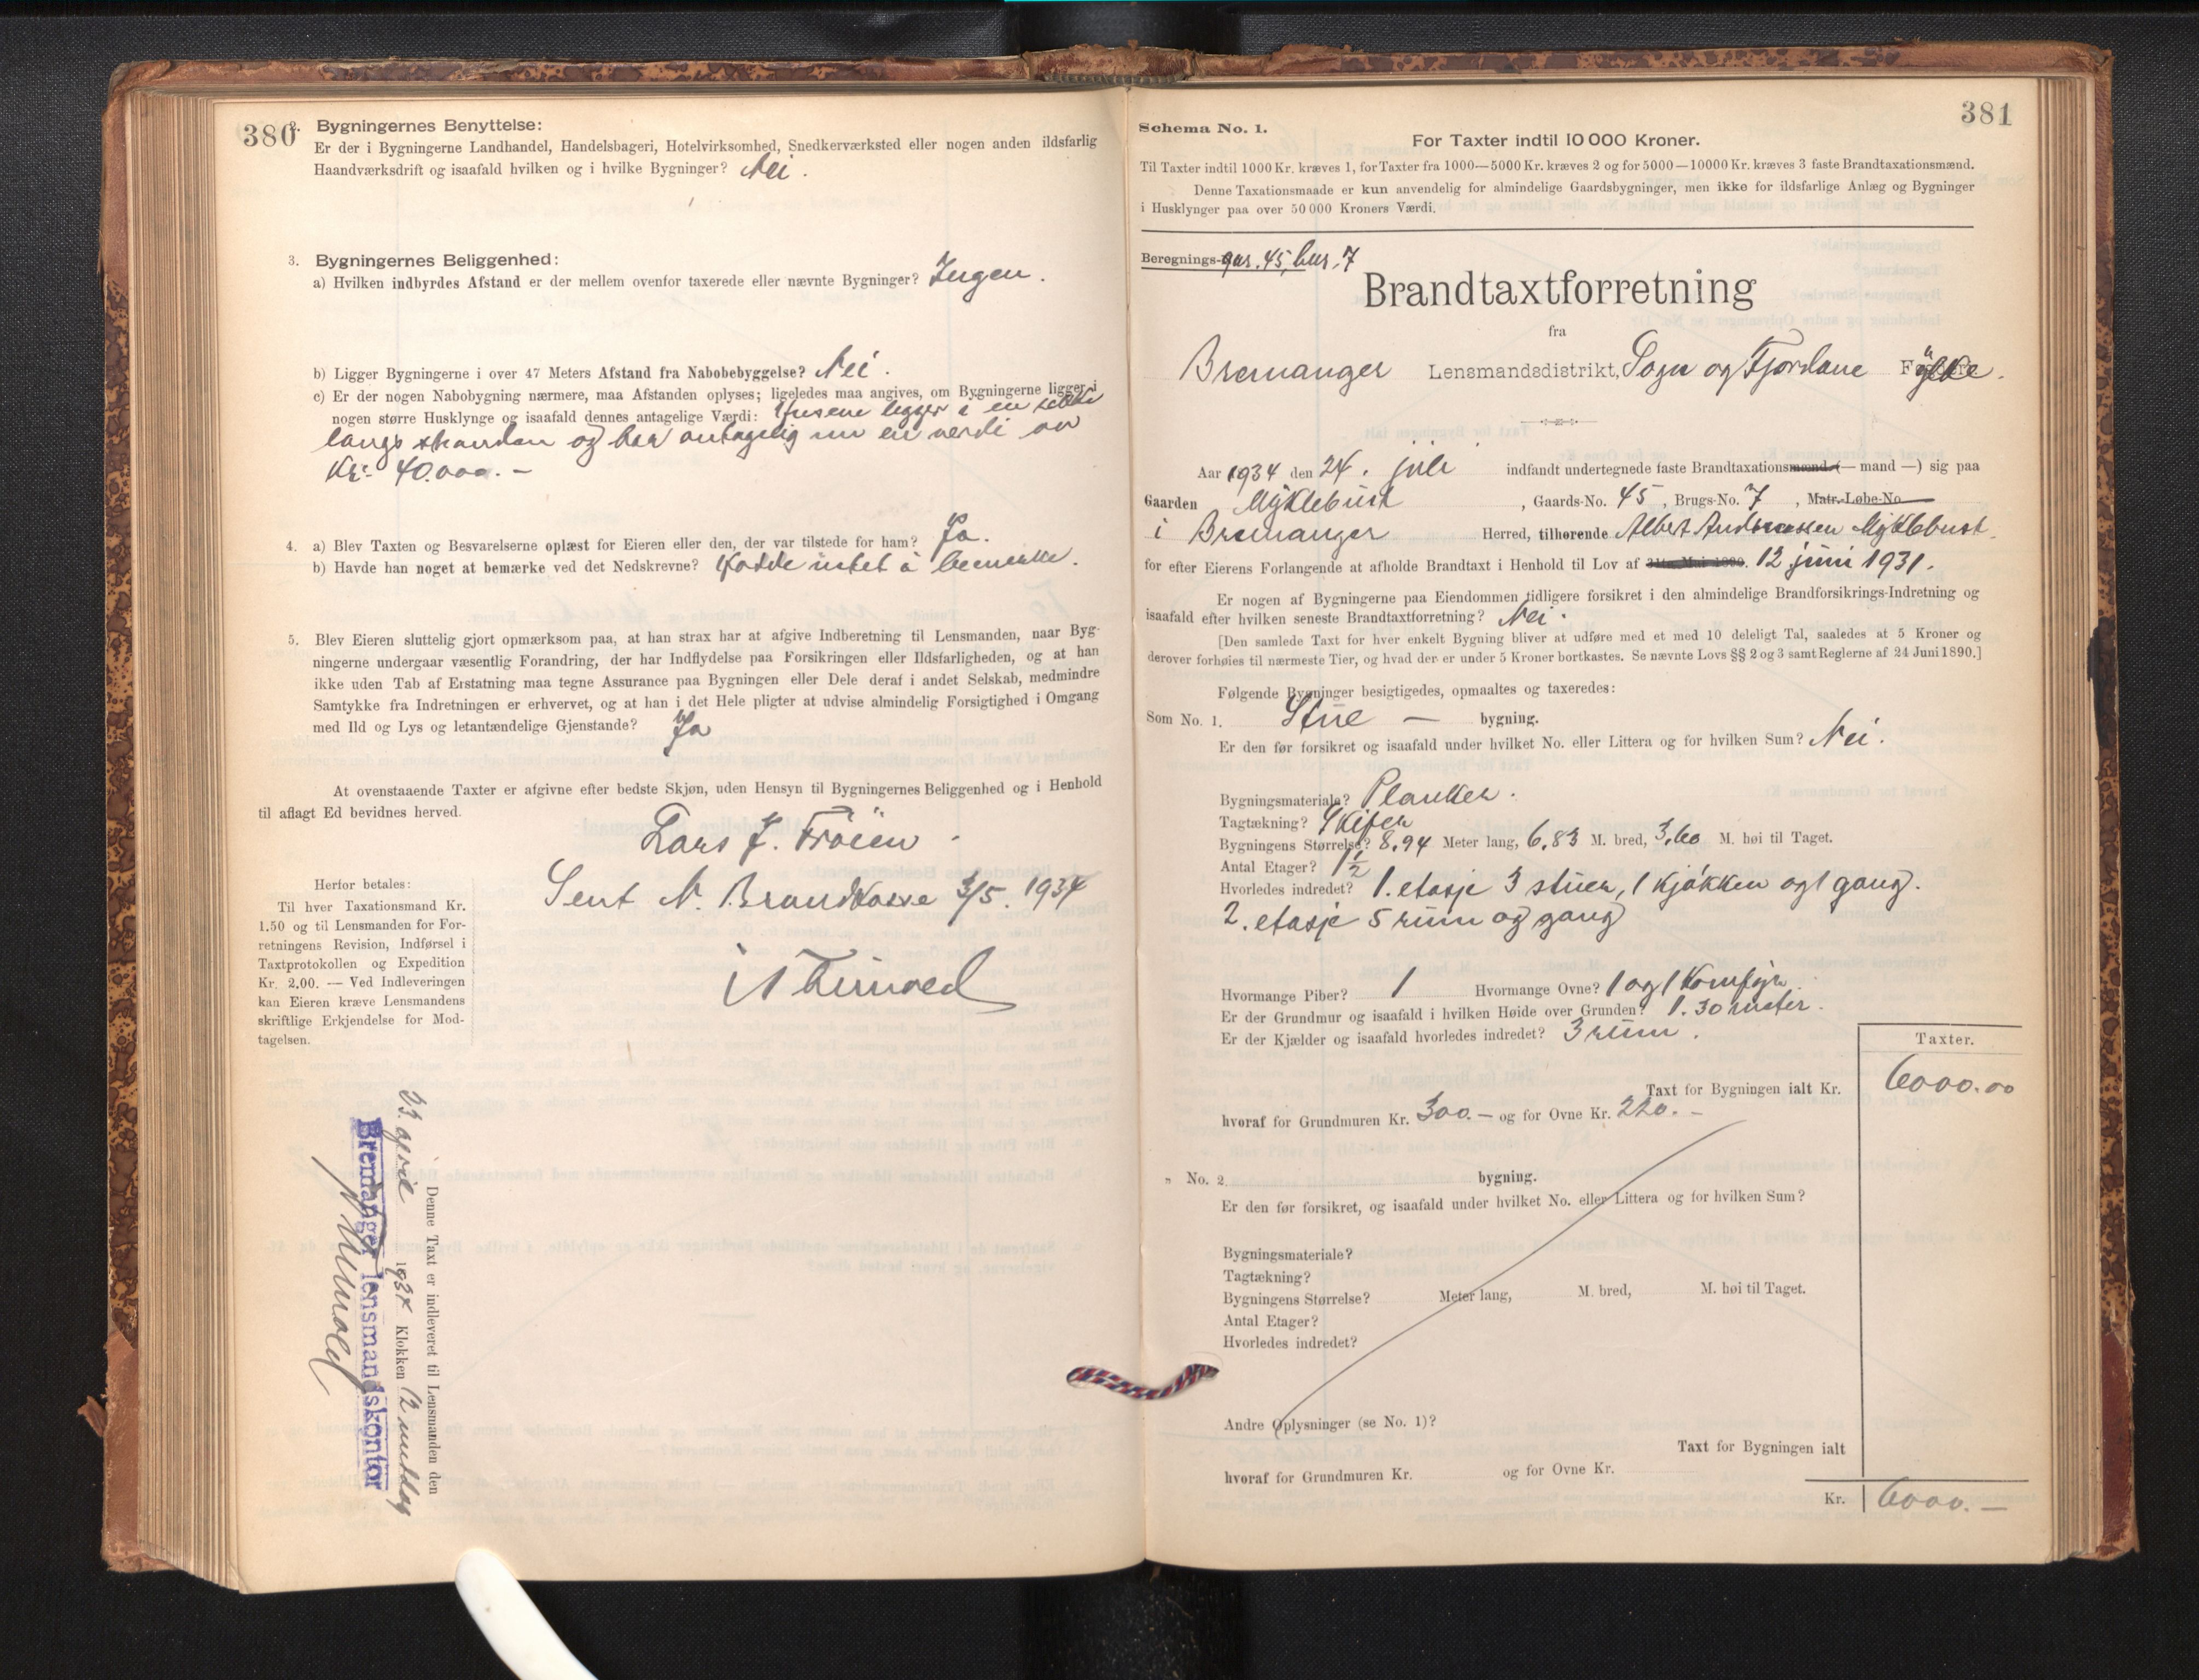 380
2. Bygningernes Benyttelse:
Er der i Bygningerne Landhandel, Handelsbageri, Hotelvirksomhed, Snedkerværksted eller nogen anden ildsfarlig
Haandværksdrift og isaafald hvilken og i hvilke Bygninger? Nei.
3. Bygningernes Beliggenhed:
a) Hvilken indbyrdes Afstand er der mellem ovenfor taxerede eller nævnte Bygninger? Ingen.
b) Ligger Bygningerne i over 47 Meters Afstand fra Nabobebyggelse? Nei.
c) Er der nogen Nabobygning nærmere, maa Afstanden oplyses; ligeledes maa angives, om Bygningerne ligger i
nogen større Husklynge og isaafald dennes antagelige Værdi: Husene ligger i en rekke
langs stranden og har antagelig nu en verdi av
Kr: 40.000.-
4. a) Blev Taxten og Besvarelserne oplæst for Eieren eller den, der var tilstede for ham? Ja.
b) Havde han noget at bemærke ved det Nedskrevne? Hadde intet å bemerke.
5. Blev Eieren sluttelig gjort opmærksom paa, at han strax har at afgive Indberetning til Lensmanden, naar Byg-
ningerne undergaar væsentlig Forandring, der har Indflydelse paa Forsikringen eller Ildsfarligheden, og at han
ikke uden Tab af Erstatning maa tegne Assurance paa Bygningen eller Dele deraf i andet Selskab, medmindre
Samtykke fra Indretningen er erhvervet, og at han i det Hele pligter at udvise almindelig Forsigtighed i Omgang
med Ild og Lys og letantændelige Gjenstande? Ja
At ovenstaaende Taxter er afgivne efter bedste Skjøn, uden Hensyn til Bygningernes Beliggenhed og i Henhold
til aflagt Ed bevidnes herved.
Lars J. Frøien.
Sent N. Brandkasse 3/5. 1934
Herfor betales:
Til hver Taxationsmand Kr.
1.50 og til Lensmanden for For-
retningens Revision, Indførsel i
Taxtprotokollen og Expedition
Kr. 2,00. — Ved Indleveringen
kan Eieren kræve Lensmandens
skriftlige Erkjendelse for Mod-
tagelsen.
Denne Taxt er indleveret til Lensmanden den
23. april 1934 Klokken 12 middag
Bremanger lensmandskontor
381
Schema No. 1.
For Taxter indtil 10 000 Kroner.
Til Taxter indtil 1000 Kr. kræves 1, for Taxter fra 1000—5000 Kr. kræves 2 og for 5000—10000 Kr. kræves 3 faste Brandtaxationsmænd.
Denne Taxationsmaade er kun anvendelig for almindelige Gaardsbygninger, men ikke for ildsfarlige Anlæg og Bygninger
i Husklynger paa over 50 000 Kroners Værdi.
Beregnings- gnr. 45, bnr. 7
Brandtaxtforretning
fra
Bremanger Lensmandsdistrikt, Sogn og Fjordane Fylke.
Aar 1934 den 24. juli indfandt undertegnede faste Brandtaxationsmænd (— mand —) sig paa
Gaarden Myklebust, Gaards-No. 45, Brugs-No. 7, Matr.-Løbe-No
i Bremanger Herred, tilhørende Albert Andreassen Myklebust.
for efter Eierens Forlangende at afholde Brandtaxt i Henhold til Lov af 12 juni 1931.
Er nogen af Bygningerne paa Eiendommen tidligere forsikret i den almindelige Brandforsikrings-Indretning og
isaafald efter hvilken seneste Brandtaxtforretning? Nei.
[Den samlede Taxt for hver enkelt Bygning bliver at udføre med et med 10 deleligt Tal, saaledes at 5 Kroner og
derover forhøies til nærmeste Tier, og hvad der er under 5 Kroner bortkastes. Se nævnte Lovs §§ 2 og 3 samt Reglerne af 24 Juni 1890.]
Følgende Bygninger besigtigedes, opmaaltes og taxeredes:
Som No. 1. Stue — bygning.
Er den før forsikret og isaafald under hvilket No. eller Littera og for hvilken Sum? Nei.
Bygningsmateriale? Planker.
Tagtækning? Skifer
Bygningens Størrelse? 8,94 Meter lang, 6,83 M. bred, 3,60 M. høi til Taget.
Antal Etager? 1 1/2
Hvorledes indredet? 1. etasje 3 stuer, 1 kjøkken og 1 gang.
2. etasje 5 rum og gang
Hvormange Piber? 1 Hvormange Ovne? 1 og 1 komfyr.
Er der Grundmur og isaafald i hvilken Høide over Grunden? 1.30 meter.
Er der Kjælder og isaafald hvorledes indredet? 3 rum.
Taxter.
Taxt for Bygningen ialt Kr. 6000.00
hvoraf for Grundmuren Kr. 300.— og for Ovne Kr. 220.—
„ No. 2. bygning.
Er den før forsikret, og isaafald under hvilket No. eller Littera og for hvilken Sum?
Bygningsmateriale?
Tagtækning?
Bygningens Størrelse? Meter lang, M. bred, M. høi til Taget.
Antal Etager?
Hvorledes indredet?
Andre Oplysninger (se No. 1)?
Taxt for Bygningen ialt
hvoraf for Grundmuren Kr. og for Ovne Kr.
Kr. 6000.—